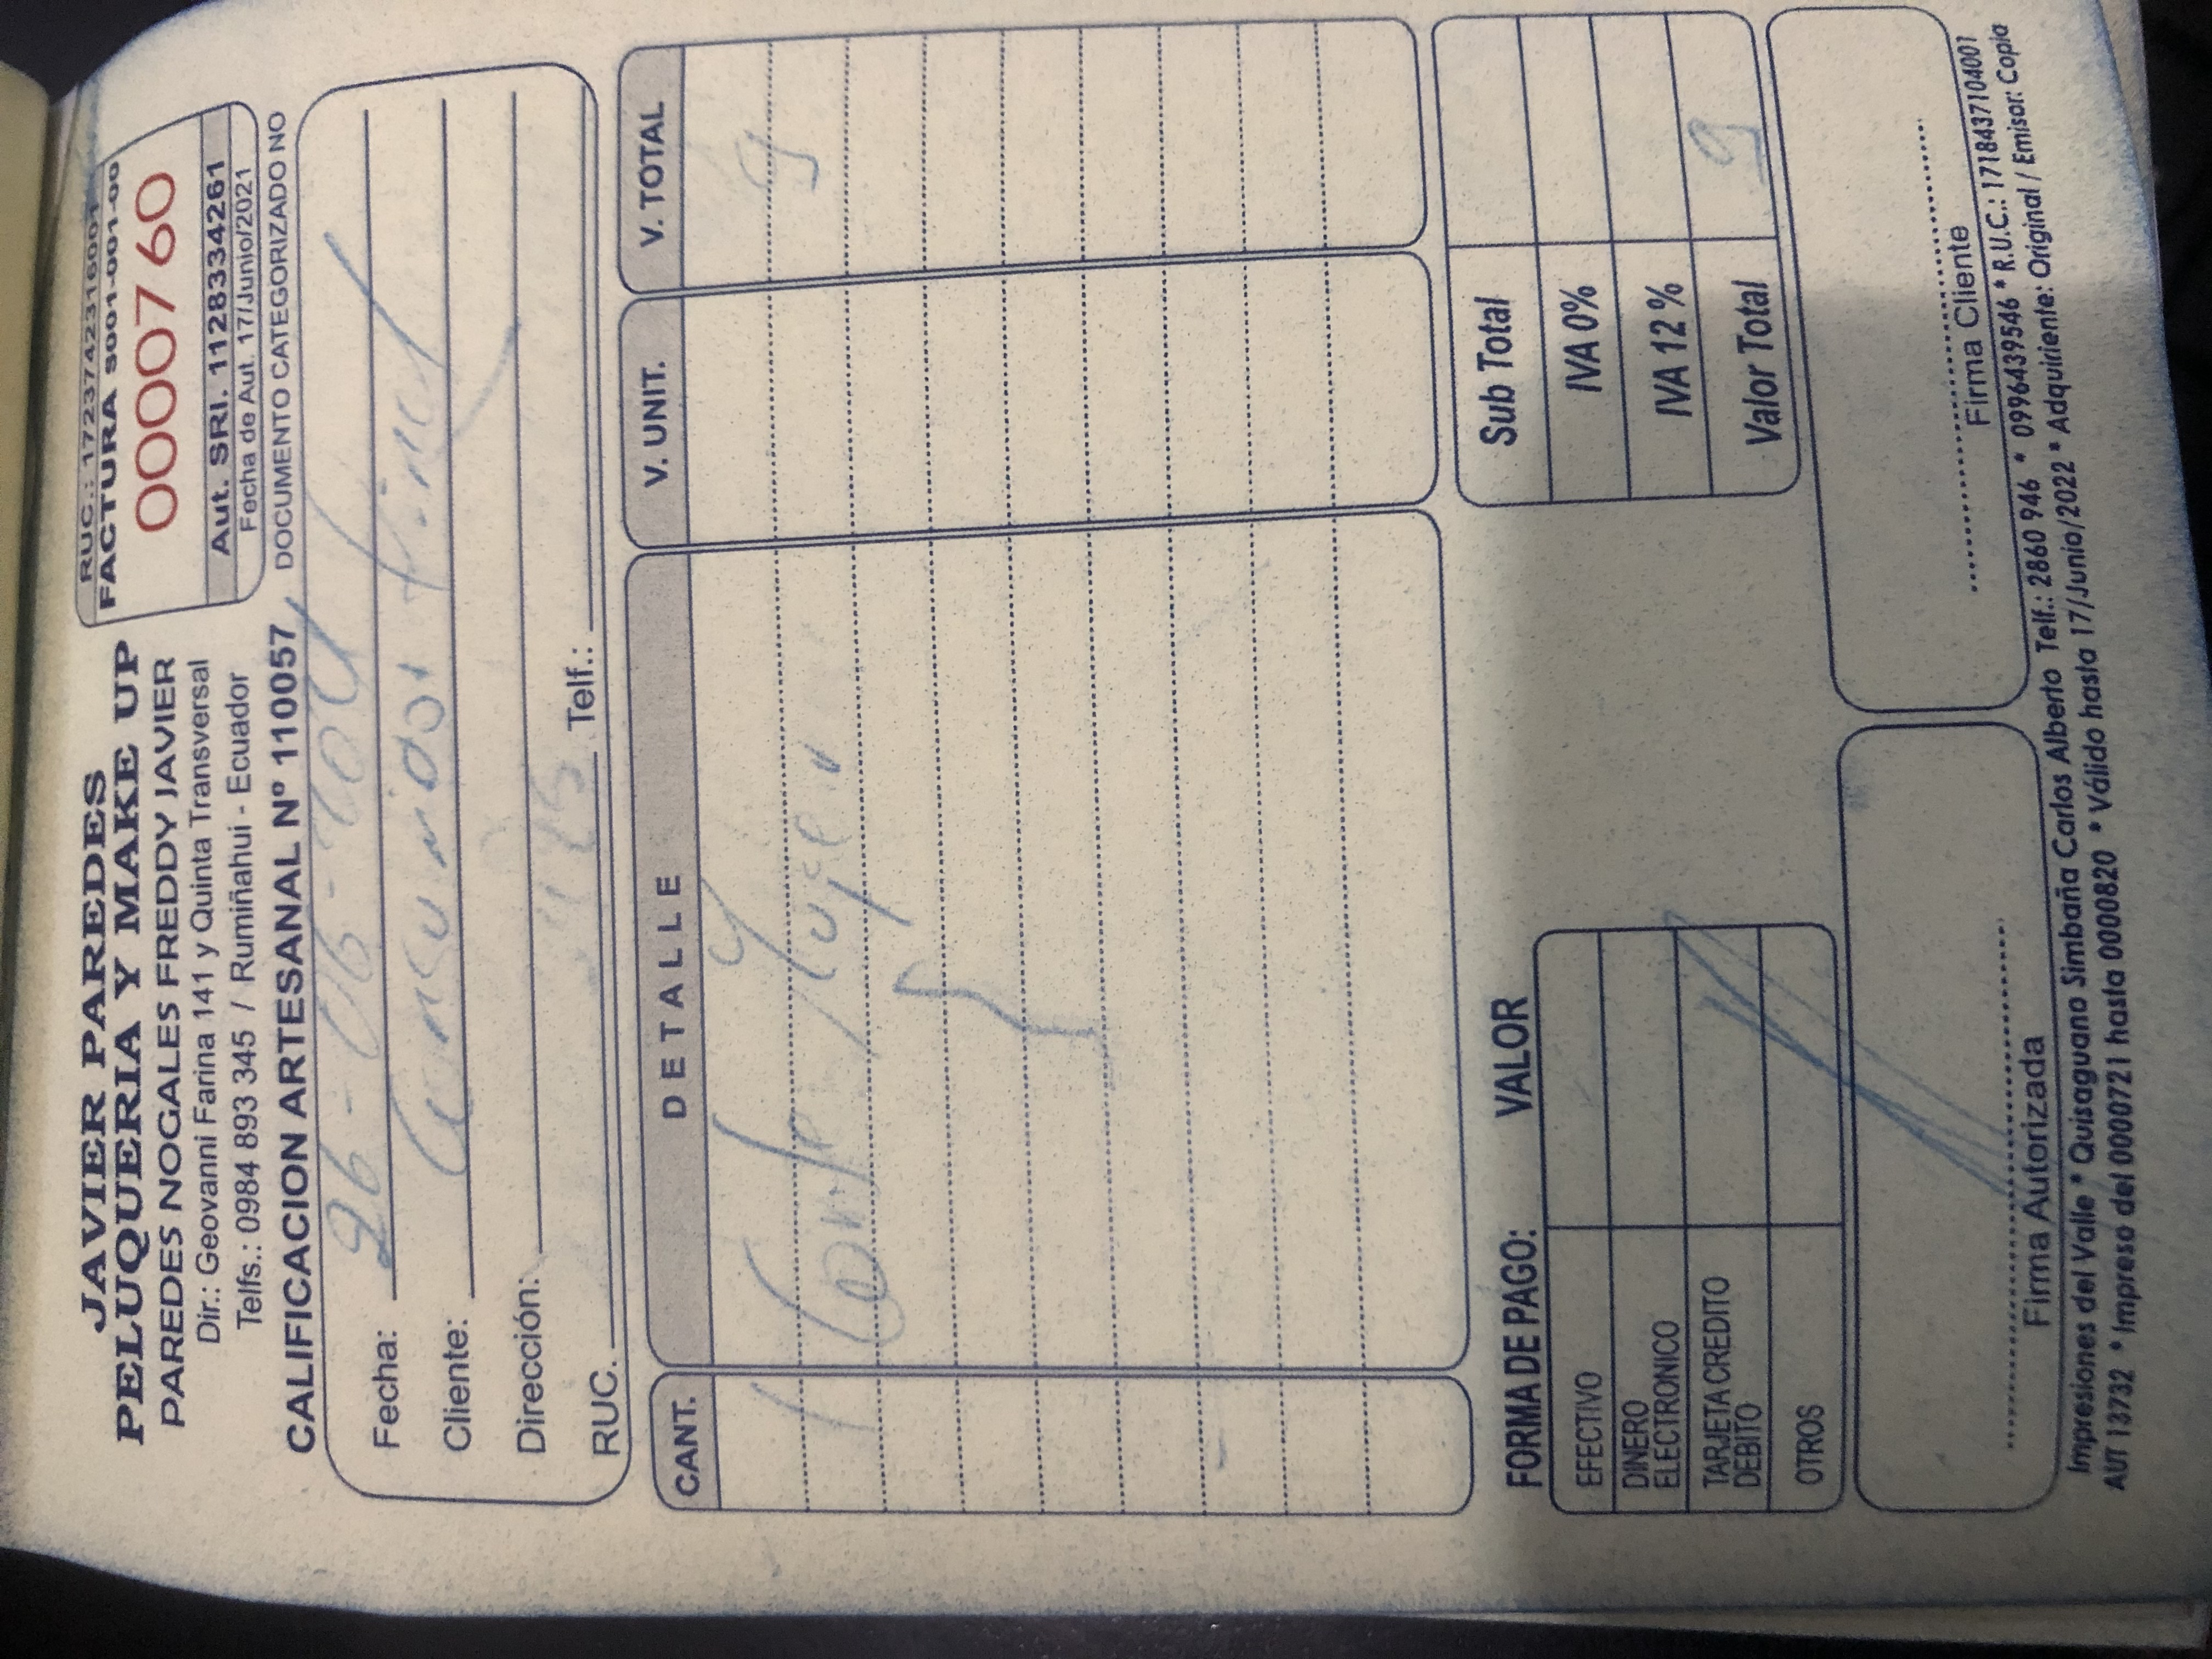 JAVIER PAREDES
PELUQUERIA Y MAKE UP
PAREDES NOGALES FREDDY JAVIER
Dir.: Geovanni Farina 141 y Quinta Transversal
Telfs.: 0984 893 345 / Rumiñahui - Ecuador
CALIFICACION ARTESANAL Nº 110057
RUC.: 1723742316001
FACTURA S001-001-00
0000760
Aut. SRI. 1128334261
Fecha de Aut. 17/Junio/2021
DOCUMENTO CATEGORIZADO NO
Fecha: 26-06-2021
Cliente: Consumidor Final
Dirección:
RUC. Telf.:
CANT. DETALLE V. UNIT. V. TOTAL
1 Corte Mujer 9
FORMA DE PAGO: VALOR
EFECTIVO
DINERO
ELECTRONICO
TARJETA CREDITO
DEBITO
OTROS
Sub Total
IVA 0%
IVA 12 %
Valor Total 9
Firma Autorizada
Firma Cliente
Impresiones del Valle * Quisaguano Simbaña Carlos Alberto Telf.: 2860 946 * 0996439546 * R.U.C.: 1718437104001
AUT 13732 * Impreso del 0000721 hasta 0000820 * Válido hasta 17/Junio/2022 * Adquiriente: Original / Emisor: Copia